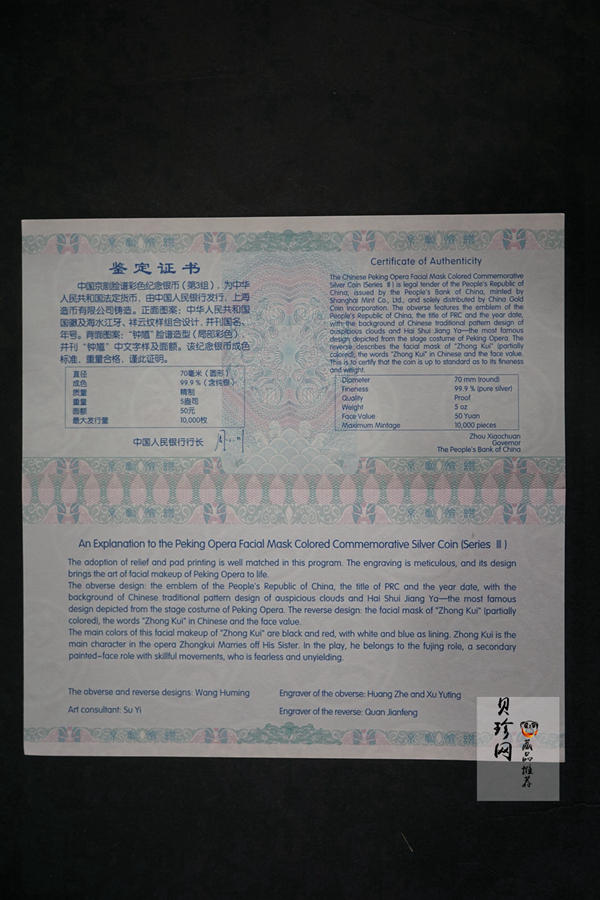 鉴定证书
中国京剧脸谱彩色纪念银币（第3组），为中华
人民共和国法定货币，由中国人民银行发行，上海
造币有限公司铸造。正面图案：中华人民共和国
国徽及海水江牙、祥云纹样组合设计，并刊国名、
年号。背面图案：“钟馗”脸谱造型（局部彩色），
并刊“钟馗”中文字样及面额。该纪念银币成色
标准，重量合格，谨此证明。
直径 70毫米（圆形）
成色 99.9％（含纯银）
质量 精制
重量 5盎司
面额 50元
最大发行量 10,000枚
中国人民银行行长
Certificate of Authenticity
The Chinese Peking Opera Facial Mask Colored Commemorative
Silver Coin (Series Ⅲ) is legal tender of the People's Republic of
China, issued by the People's Bank of China, minted by
Shanghai Mint Co., Ltd., and solely distributed by China Gold
Coin Incorporation. The obverse features the emblem of the
People's Republic of China, the title of PRC and the year date,
with the background of Chinese traditional pattern design of
auspicious clouds and Hai Shui Jiang Ya—the most famous
design depicted from the stage costume of Peking Opera. The
reverse describes the facial mask of "Zhong Kui" (partially
colored), the words "Zhong Kui" in Chinese and the face value.
This is to certify that the coin is up to standard as to its fineness
and weight.
Diameter 70 mm (round)
Fineness 99.9 % (pure silver)
Quality Proof
Weight 5 oz
Face Value 50 Yuan
Maximum Mintage 10,000 pieces
Zhou Xiaochuan
Governor
The People's Bank of China
An Explanation to the Peking Opera Facial Mask Colored Commemorative Silver Coin (Series Ⅲ)
The adoption of relief and pad printing is well matched in this program. The engraving is meticulous, and its design
brings the art of facial makeup of Peking Opera to life.
The obverse design: the emblem of the People's Republic of China, the title of PRC and the year date, with the
background of Chinese traditional pattern design of auspicious clouds and Hai Shui Jiang Ya—the most famous
design depicted from the stage costume of Peking Opera. The reverse design: the facial mask of "Zhong Kui" (partially
colored), the words "Zhong Kui" in Chinese and the face value.
The main colors of this facial makeup of "Zhong Kui" are black and red, with white and blue as lining. Zhong Kui is the
main character in the opera Zhongkui Marries off His Sister. In the play, he belongs to the fujing role, a secondary
painted-face role with skillful movements, who is fearless and unyielding.
The obverse and reverse designs: Wang Huming
Engraver of the obverse: Huang Zhe and Xu Yuting
Art consultant: Su Yi
Engraver of the reverse: Quan Jianfeng
贝珍网
藏品推荐